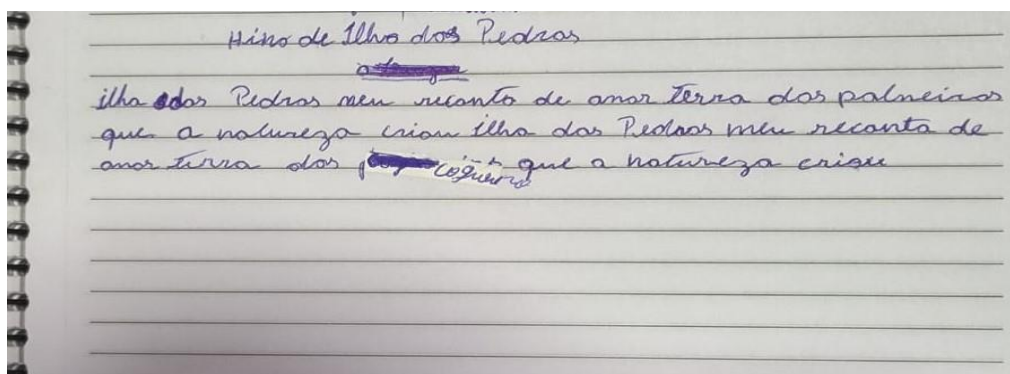 Hino de Ilha dos Pedras
ilha das Pedras meu recanto de amor Terra das palmeiras
que a natureza criou ilha das Pedras meu recanto de
amor terra dos coqueiros que a natureza criou